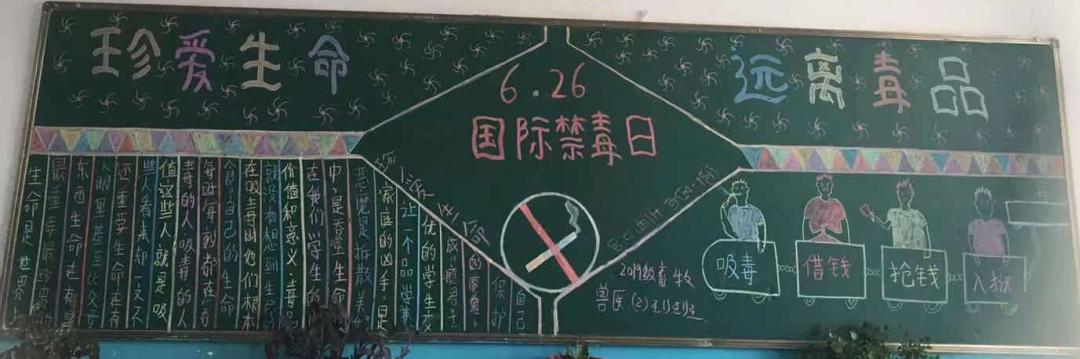 珍爱生命
6.26
国际禁毒日
远离毒品
生命是世界上
最重要最珍贵的
东西生命在有
人眼里甚至比父母
还重要生命在有
些人看来却一文不
值这些人就是吸
毒的人吸毒的人
每时每刻都在吞
食自己的生命
在吸毒时他们根本
就没有想到生命
价值和意义.毒品
在我们学生的
中,是吞噬生命
恶魔是拆散美好
家庭的凶手,是
让一个品学兼
优的学生变
成"瘾君子"
的
保护
自己
生命
吸毒
借钱
抢钱
入狱
2019级畜牧
兽医(2)